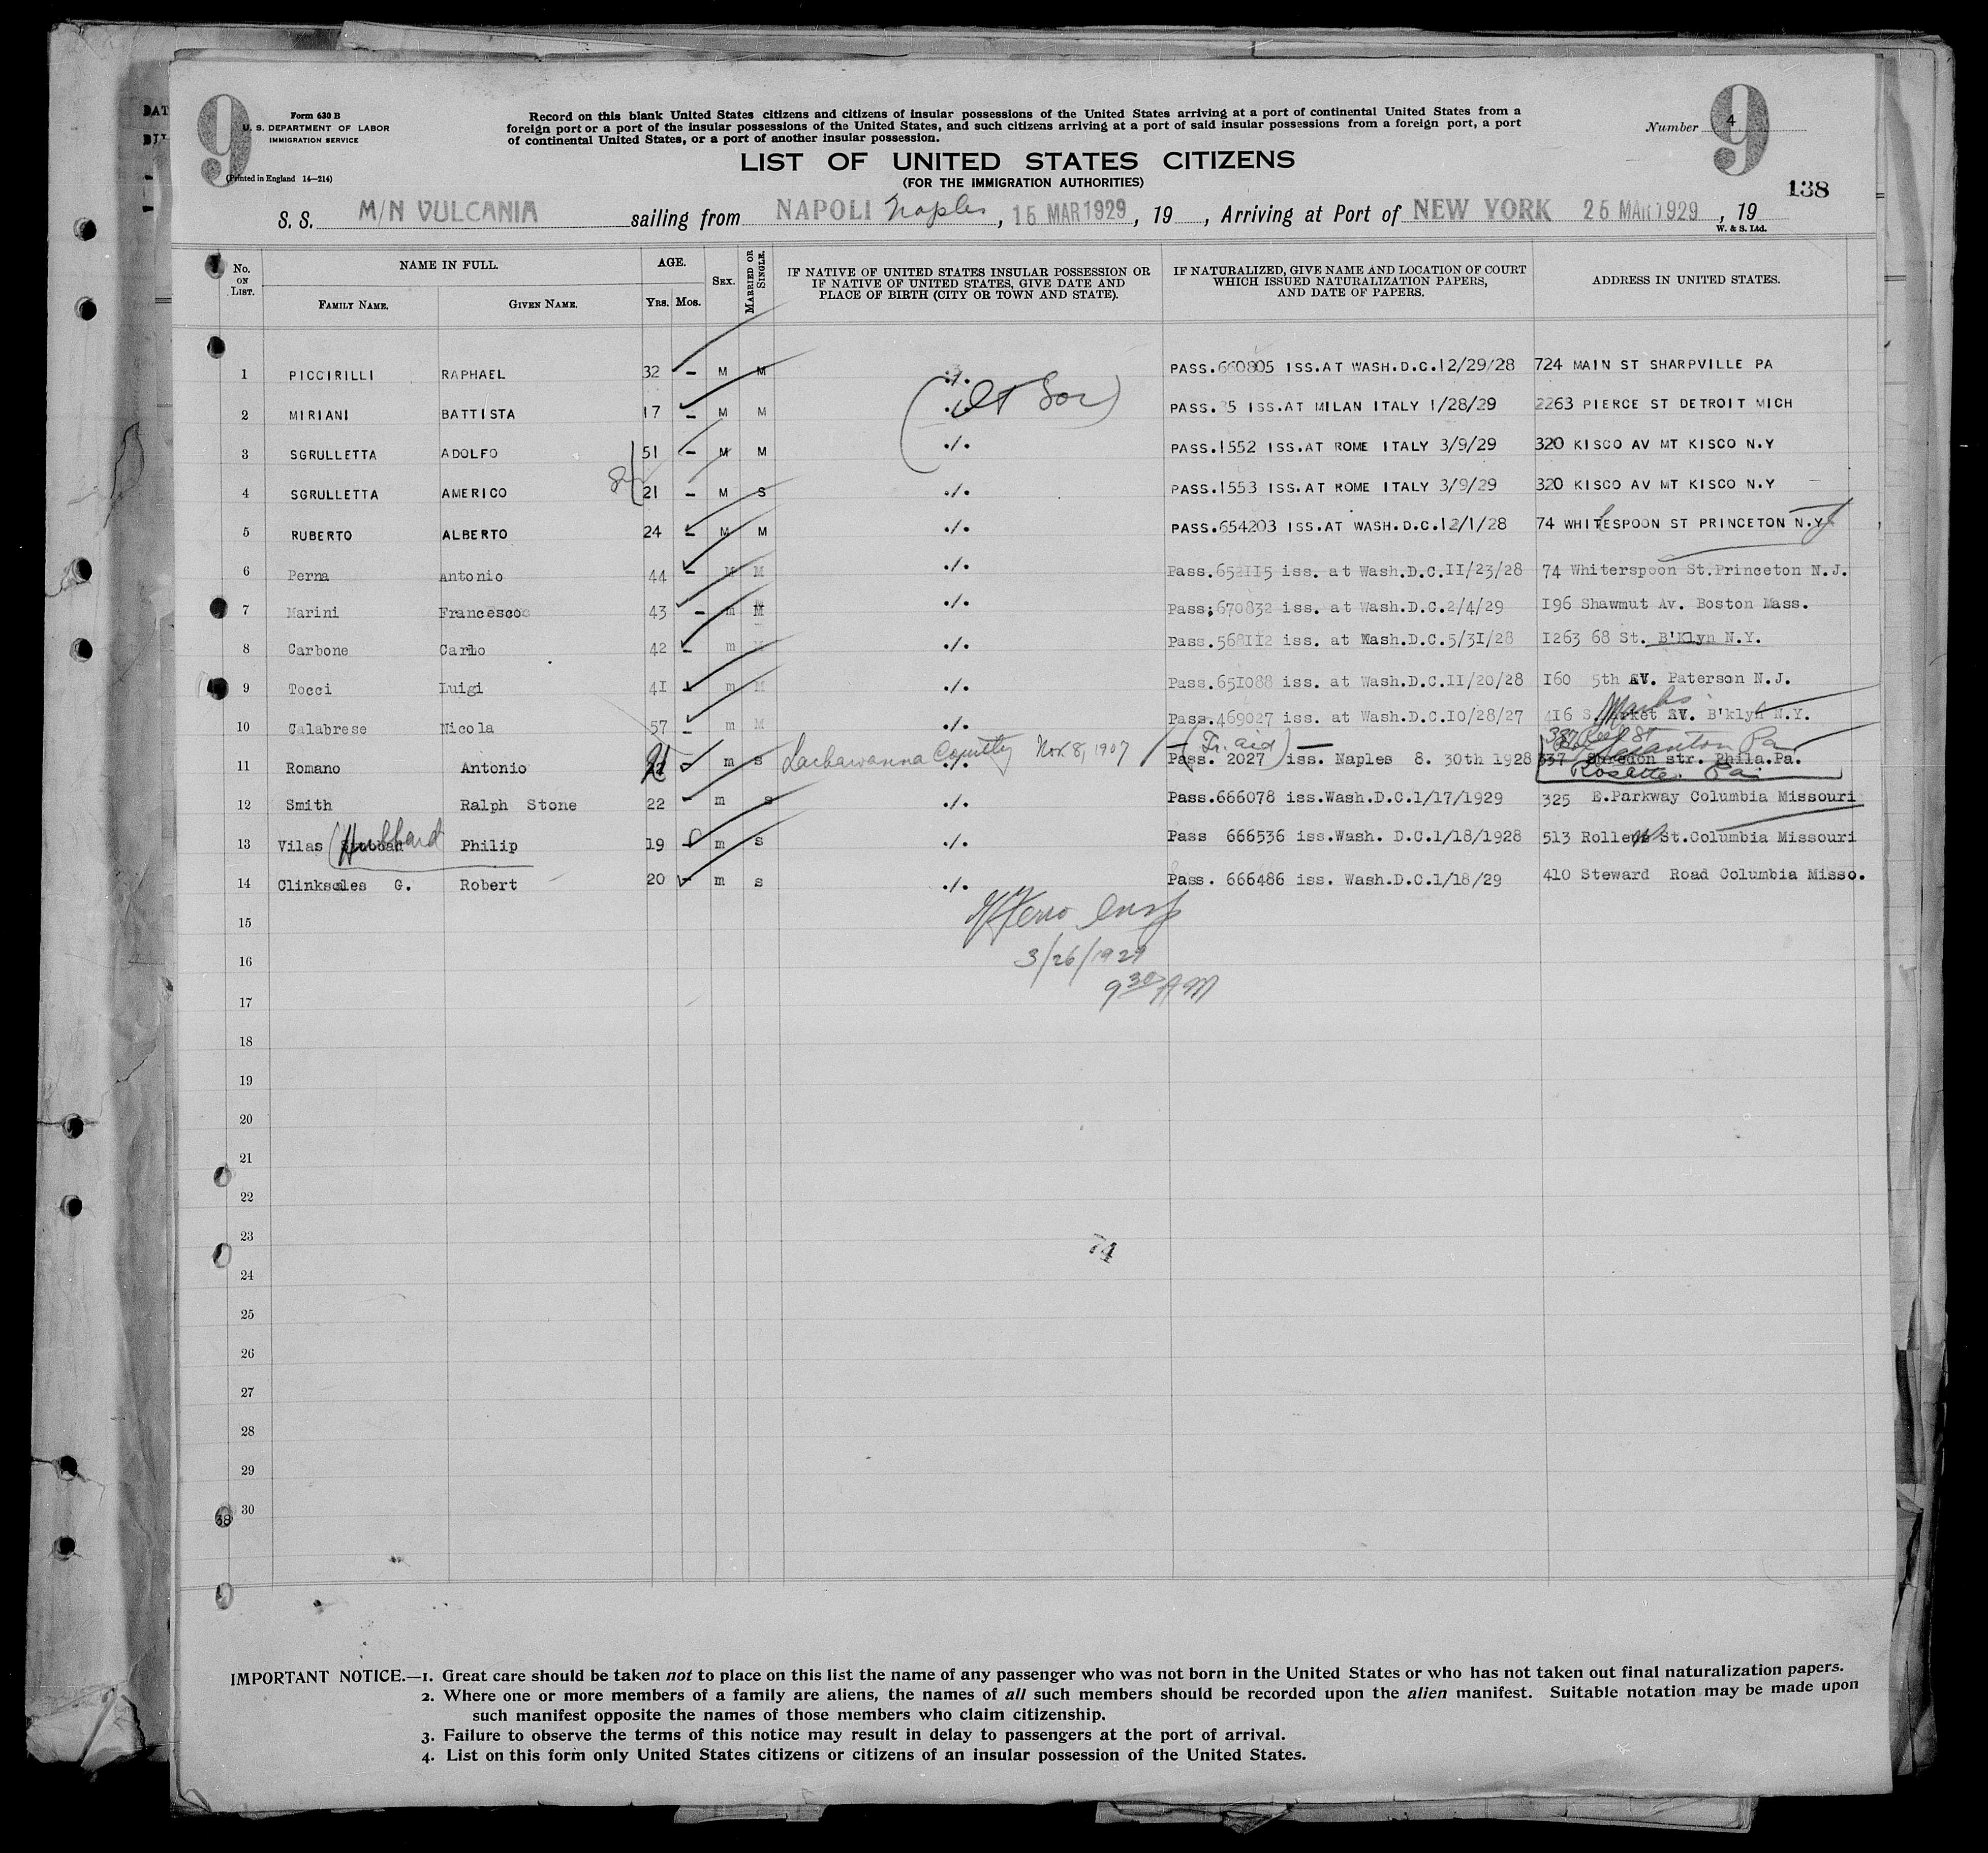 9
Form 630 B
U. S. DEPARTMENT OF LABOR
IMMIGRATION SERVICE
(Printed in England 14—214)
Record on this blank United States citizens and citizens of insular possessions of the United States arriving at a port of continental United States from a
foreign port or a port of the insular possessions of the United States, and such citizens arriving at a port of said insular possessions from a foreign port, a port
of continental United States, or a port of another insular possession.
Number 4
9
138
LIST OF UNITED STATES CITIZENS
(FOR THE IMMIGRATION AUTHORITIES)
S. S. M/N VULCANIA sailing from NAPOLI Naples, 15 MAR 1929, 19 , Arriving at Port of NEW YORK 25 MAR 1929, 19
W. & S. Ltd.
No. ON LIST. NAME IN FULL. FAMILY NAME. GIVEN NAME. AGE. YRS. MOS. SEX. MARRIED OR SINGLE. IF NATIVE OF UNITED STATES INSULAR POSSESSION OR IF NATIVE OF UNITED STATES, GIVE DATE AND PLACE OF BIRTH (CITY OR TOWN AND STATE). IF NATURALIZED, GIVE NAME AND LOCATION OF COURT WHICH ISSUED NATURALIZATION PAPERS, AND DATE OF PAPERS. ADDRESS IN UNITED STATES.
1 PICCIRILLI RAPHAEL 32 - M M ./. PASS.660805 ISS.AT WASH.D.C.12/29/28 724 MAIN ST SHARPVILLE PA
2 MIRIANI BATTISTA 17 - M M ./. PASS.35 ISS.AT MILAN ITALY 1/28/29 2263 PIERCE ST DETROIT MICH
3 SGRULLETTA ADOLFO 51 - M M ./. PASS.1552 ISS.AT ROME ITALY 3/9/29 320 KISCO AV MT KISCO N.Y
4 SGRULLETTA AMERICO 21 - M S ./. PASS.1553 ISS.AT ROME ITALY 3/9/29 320 KISCO AV MT KISCO N.Y
5 RUBERTO ALBERTO 24 - M M ./. PASS.654203 ISS.AT WASH.D.C.12/1/28 74 WHITESPOON ST PRINCETON N.Y
6 Perna Antonio 44 - M M ./. Pass.652115 iss. at Wash.D.C.11/23/28 74 Whiterspoon St.Princeton N.J.
7 Marini Francesco 43 - m M ./. Pass;670832 iss. at Wash.D.C.2/4/29 196 Shawmut Av. Boston Mass.
8 Carbone Carlo 42 - m M ./. Pass.568112 iss. at Wash.D.C.5/31/28 1263 68 St. B'Klyn N.Y.
9 Tocci Luigi 41 - m M ./. Pass.651088 iss. at Wash.D.C.11/20/28 160 5th AV. Paterson N.J.
10 Calabrese Nicola 57 - m M ./. Pass.469027 iss. at Wash.D.C.10/28/27 416 S. Market AV. B'klyn N.Y.
Marks
11 Romano Antonio 21 m s Lackawanna County Nov. 8, 1907 ./. Pass. 2027 iss. Naples 8. 30th 1928 337 str. Phila.Pa.
Scranton Pa
12 Smith Ralph Stone 22 - m s ./. Pass.666078 iss.Wash.D.C.1/17/1929 325 E.Parkway Columbia Missouri
13 Vilas (Hubbard Philip 19 - m s ./. Pass 666536 iss.Wash. D.C.1/18/1928 513 Rollens St.Columbia Missouri
14 Clinksales G. Robert 20 - m s ./. Pass. 666486 iss. Wash.D.C.1/18/29 410 Steward Road Columbia Misso.
15
3/26/1929
16
9 30 AM
17
18
19
20
21
22
23
74
24
25
26
27
28
29
30
38
IMPORTANT NOTICE.—1. Great care should be taken not to place on this list the name of any passenger who was not born in the United States or who has not taken out final naturalization papers.
2. Where one or more members of a family are aliens, the names of all such members should be recorded upon the alien manifest. Suitable notation may be made upon
such manifest opposite the names of those members who claim citizenship.
3. Failure to observe the terms of this notice may result in delay to passengers at the port of arrival.
4. List on this form only United States citizens or citizens of an insular possession of the United States.